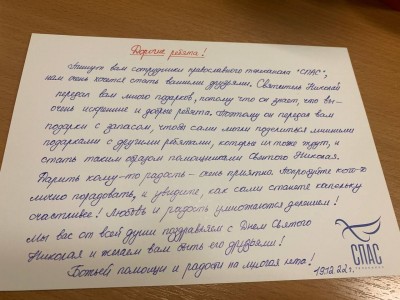 Дорогие ребята!
Пишут вам сотрудники православного телеканала "СПАС",
нам очень хочется стать вашими друзьями. Святитель Николай
передал вам много подарков, потому что он знает, что вы-
очень искренние и добрые ребята. Поэтому он передал вам
подарки с запасом, чтобы сами могли поделиться лишними
подарками с другими ребятами, которые их тоже ждут, и
стать таким образом помощниками Святого Николая.
Дарить кому-то радость - очень приятно. Попробуйте кого-то
лично порадовать, и увидите, как сами станете капельку
счастливее! Любовь и радость умножаются делением!
Мы вас от всей души поздравляем с Днем Святого
Николая и желаем вам быть его друзьями!
Божьей помощи и радости на многая лета!
СПАС
ТЕЛЕКАНАЛ
19.12.22 г.